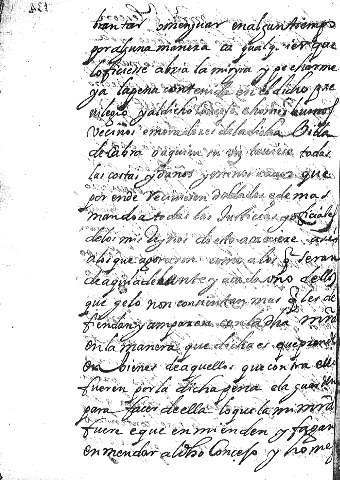 134
brantar o menguar en algun tiempo
por alguna manera ca qualquier que
lo ficiesse abria la mi yra y pecharme
ya la pena contenida en el dicho pre
vilegio y al dicho Concejo e homes buenos
vecinos e moradores de la dicha Villa
de Cabra o a quien su voz tuviere todas
las costas y daños y menoscavos que
por ende recivieren doblados e demas
mando a todas las Justicias y oficiales
de los mis Reynos do esto acaesciere
a los que agora son como a los q seran
de aqui adelante y a cada uno de ellos
que gelo non consientan mas q les de
fiendan y amparen con la dha mrd
en la manera que dicha es e que prenda
en vienes de aquellos que contra ello
fueren por la dicha pena e la guarden
para facer de ella lo que la mi mrd
fuere e que enmienden y fagan
enmendar al dho Concejo y home